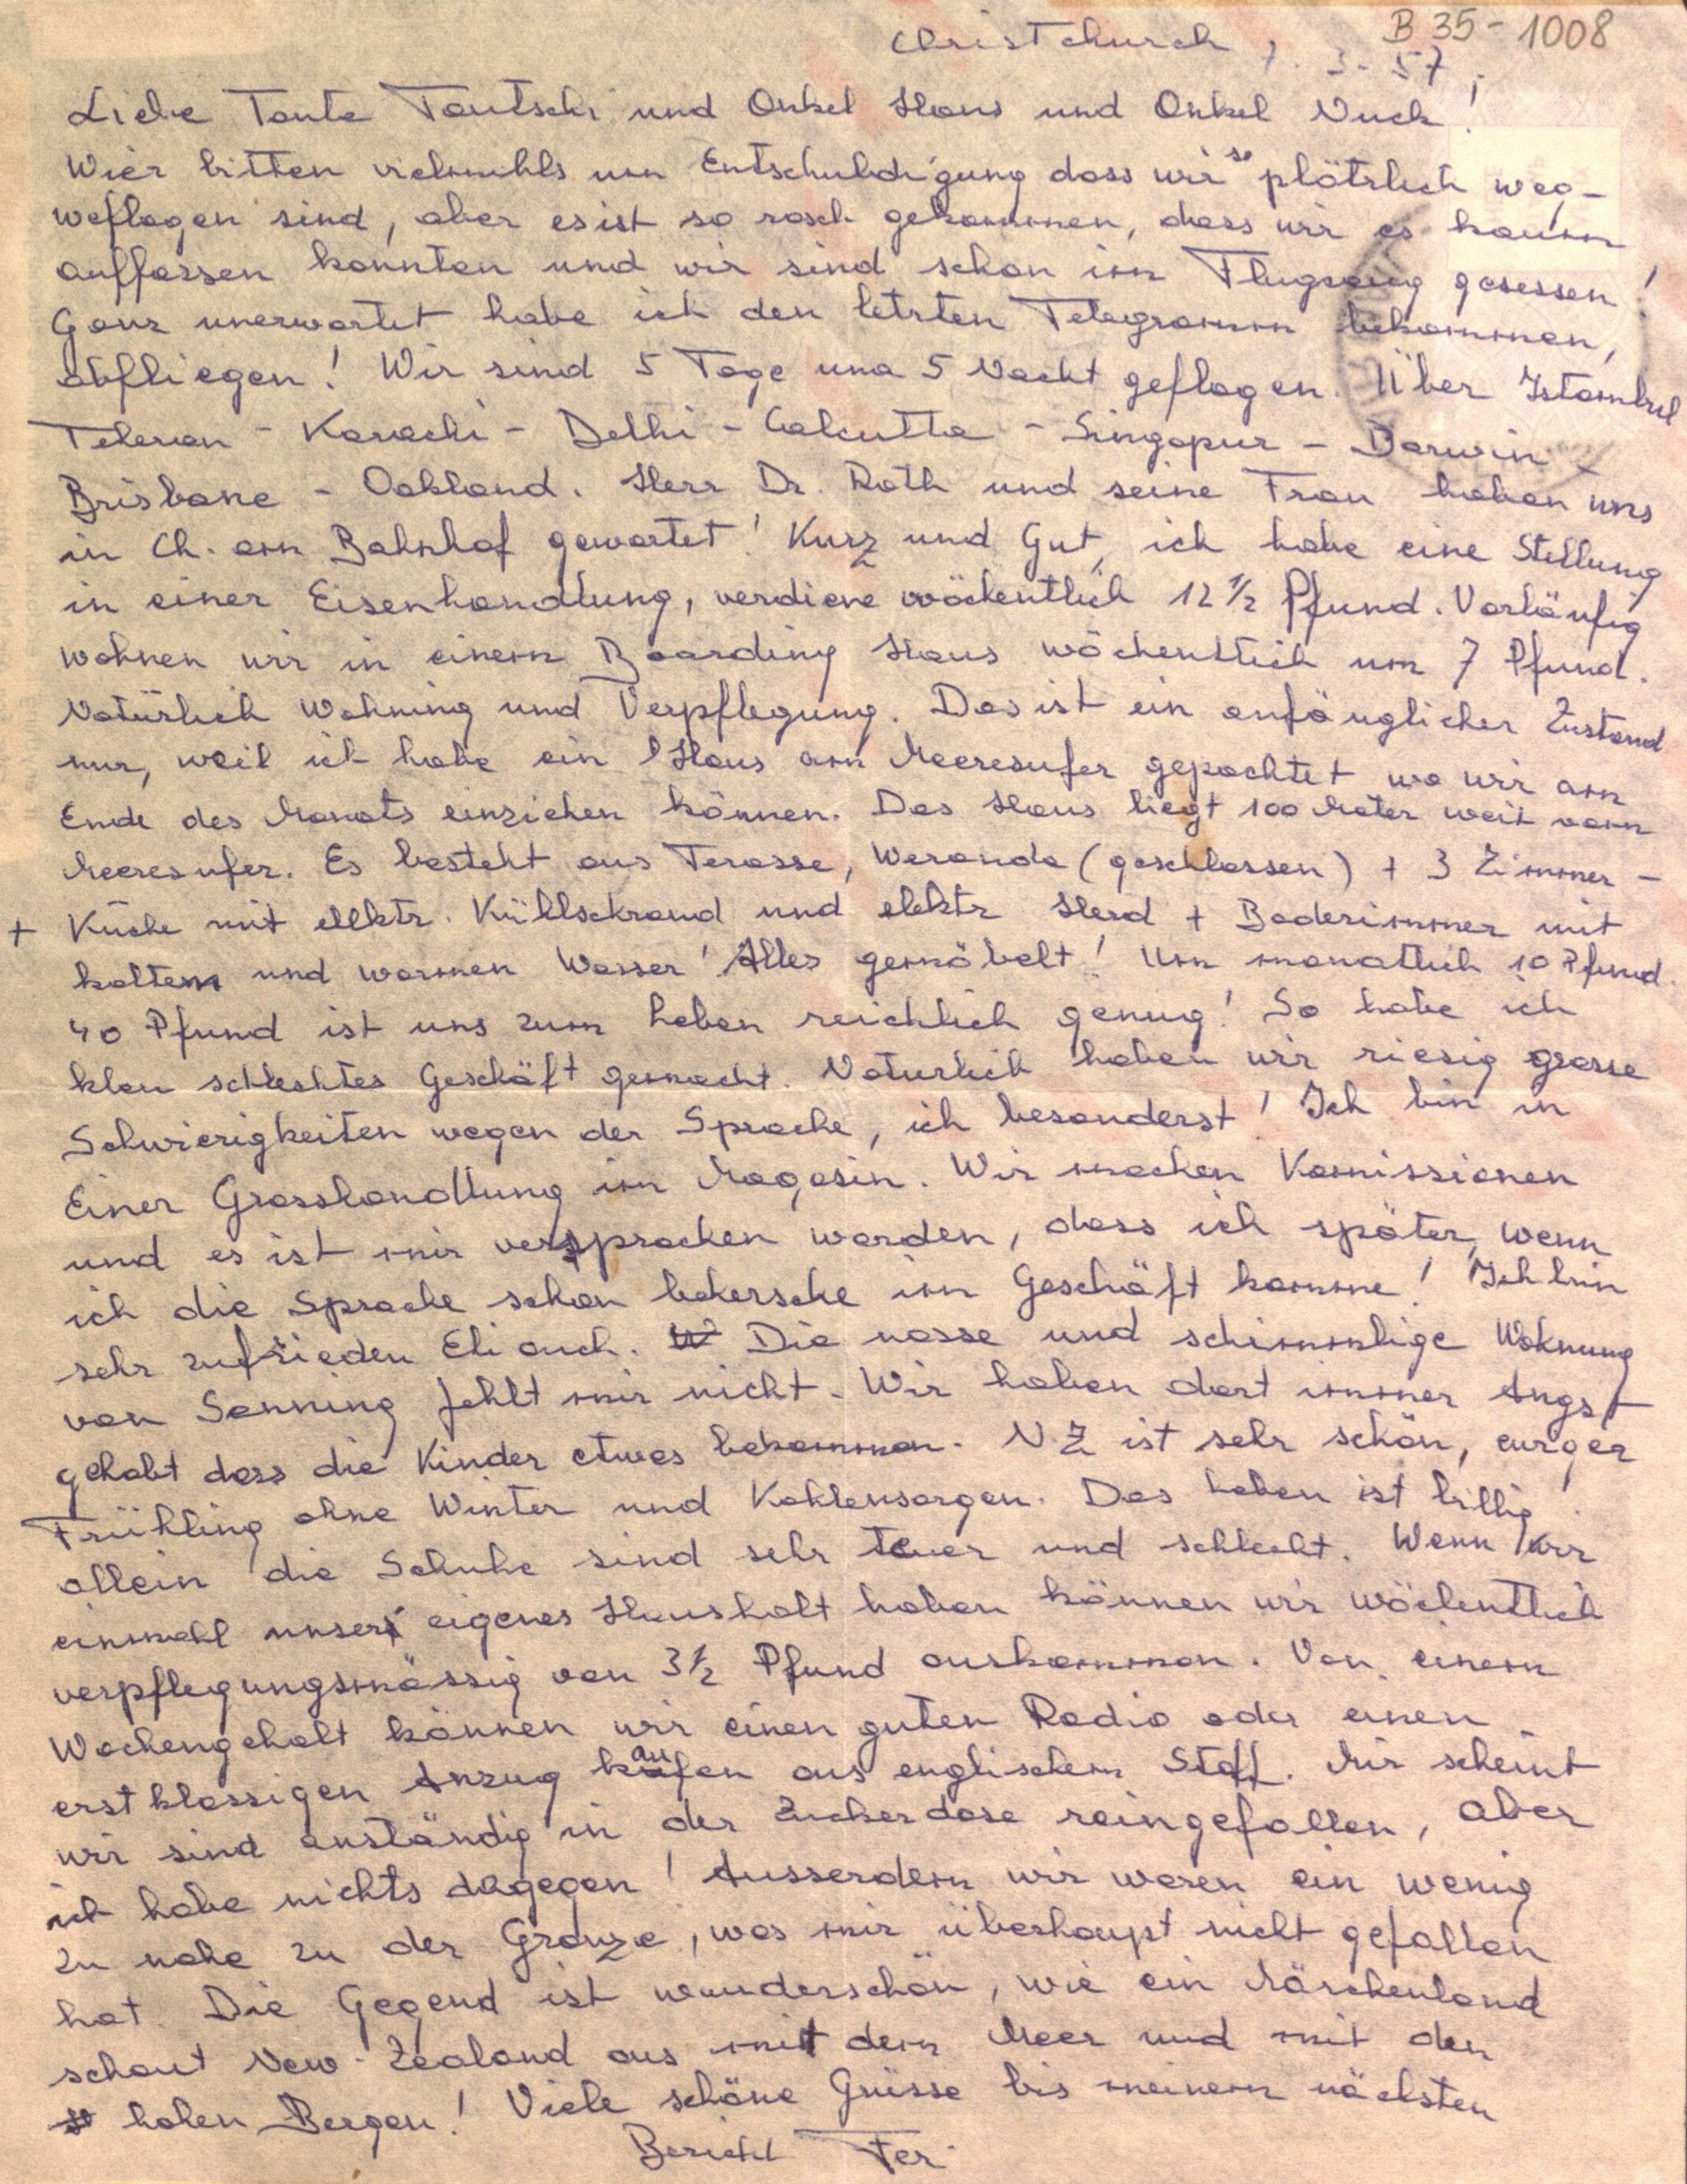 B 35-1008
Christchurch, 7. 3. 57.
Liebe Tante Tautschi und Onkel Hans und Onkel Nuck!
Wier bitten vielmahls um Entschuldigung dass wir so plötzlich weg-
weflogen sind, aber es ist so rasch gekommen, dass wir es kaum
auffassen konnten und wir sind schon im Flugzeug gesessen!
Ganz unerwartet habe ich den letzten Telegramm bekommen,
abfliegen! Wir sind 5 Tage und 5 Nacht geflogen. Über Istambul
Teheran - Karachi - Delhi - Calcutta - Singapur - Darwin -
Brisbane - Oakland. Herr Dr. Roth und seine Frau haben uns
in Ch. am Bahnhof gewartet! Kurz und Gut, ich habe eine Stellung
in einer Eisenhandlung, verdiene wöchentlich 12 1/2 Pfund. Vorläufig
wohnen wir in einem Boarding Haus wöchentlich um 7 Pfund.
Natürlich Wohning und Verpflegung. Das ist ein anfänglicher Zustand
nur, weil ich habe ein Haus am Meeresufer gepachtet wo wir am
Ende des Monats einziehen können. Das Haus liegt 100 Meter weit vom
Meeresufer. Es besteht aus Terasse, Weranda (geschlossen) + 3 Zimmer -
+ Küche mit ellktr. Kühlschrand und elektr Herd + Badezimmer mit
kaltem und warmen Wasser! Alles gemöbelt! Um monatlich 10 Pfund.
40 Pfund ist uns zum Leben reichlich genug! So habe ich
klen schleshtes Geschäft gemacht. Naturlich haben wir riesig grosse
Schwierigkeiten wegen der Sprache, ich besonderst! Ich bin in
Einer Grosshandlung im Magasin. Wir machen Komissionen
und es ist mir versprochen worden, dass ich später, wenn
ich die Sprache schon behersche im Geschäft komme! Ich bin
sehr zufrieden Eli auch. Die nasse und schimmlige Wohnung
von Sanning fehlt mir nicht. Wir haben dort immer Angst
gehabt dass die Kinder etwas bekommen. N.Z ist sehr schön, ewiger
Frühling ohne Winter und Kohlensorgen. Das Leben ist billig
allein die Schuhe sind sehr teuer und schlecht. Wenn wir
einmahl unser eigenes Haushalt haben können wir wöchentlich
verpflegungsmässig von 3 1/2 Pfund auskommen. Von einem
Wochengehalt können wir einen guten Radio oder einen
erstklassigen Anzug kaufen aus englischem Stoff. Mir scheint
wir sind anständig in der Zuckerdose reingefallen, aber
ich habe nichts dagegen! Ausserdem wir waren ein wenig
zu nahe zu der Gränze, was mir überhaupt nicht gefallen
hat. Die Gegend ist wunderschön, wie ein Märchenland
schaut New-Zealand aus mit dem Meer und mit den
hohen Bergen! Viele schöne Grüsse bis meinem nächsten
Bericht Feri